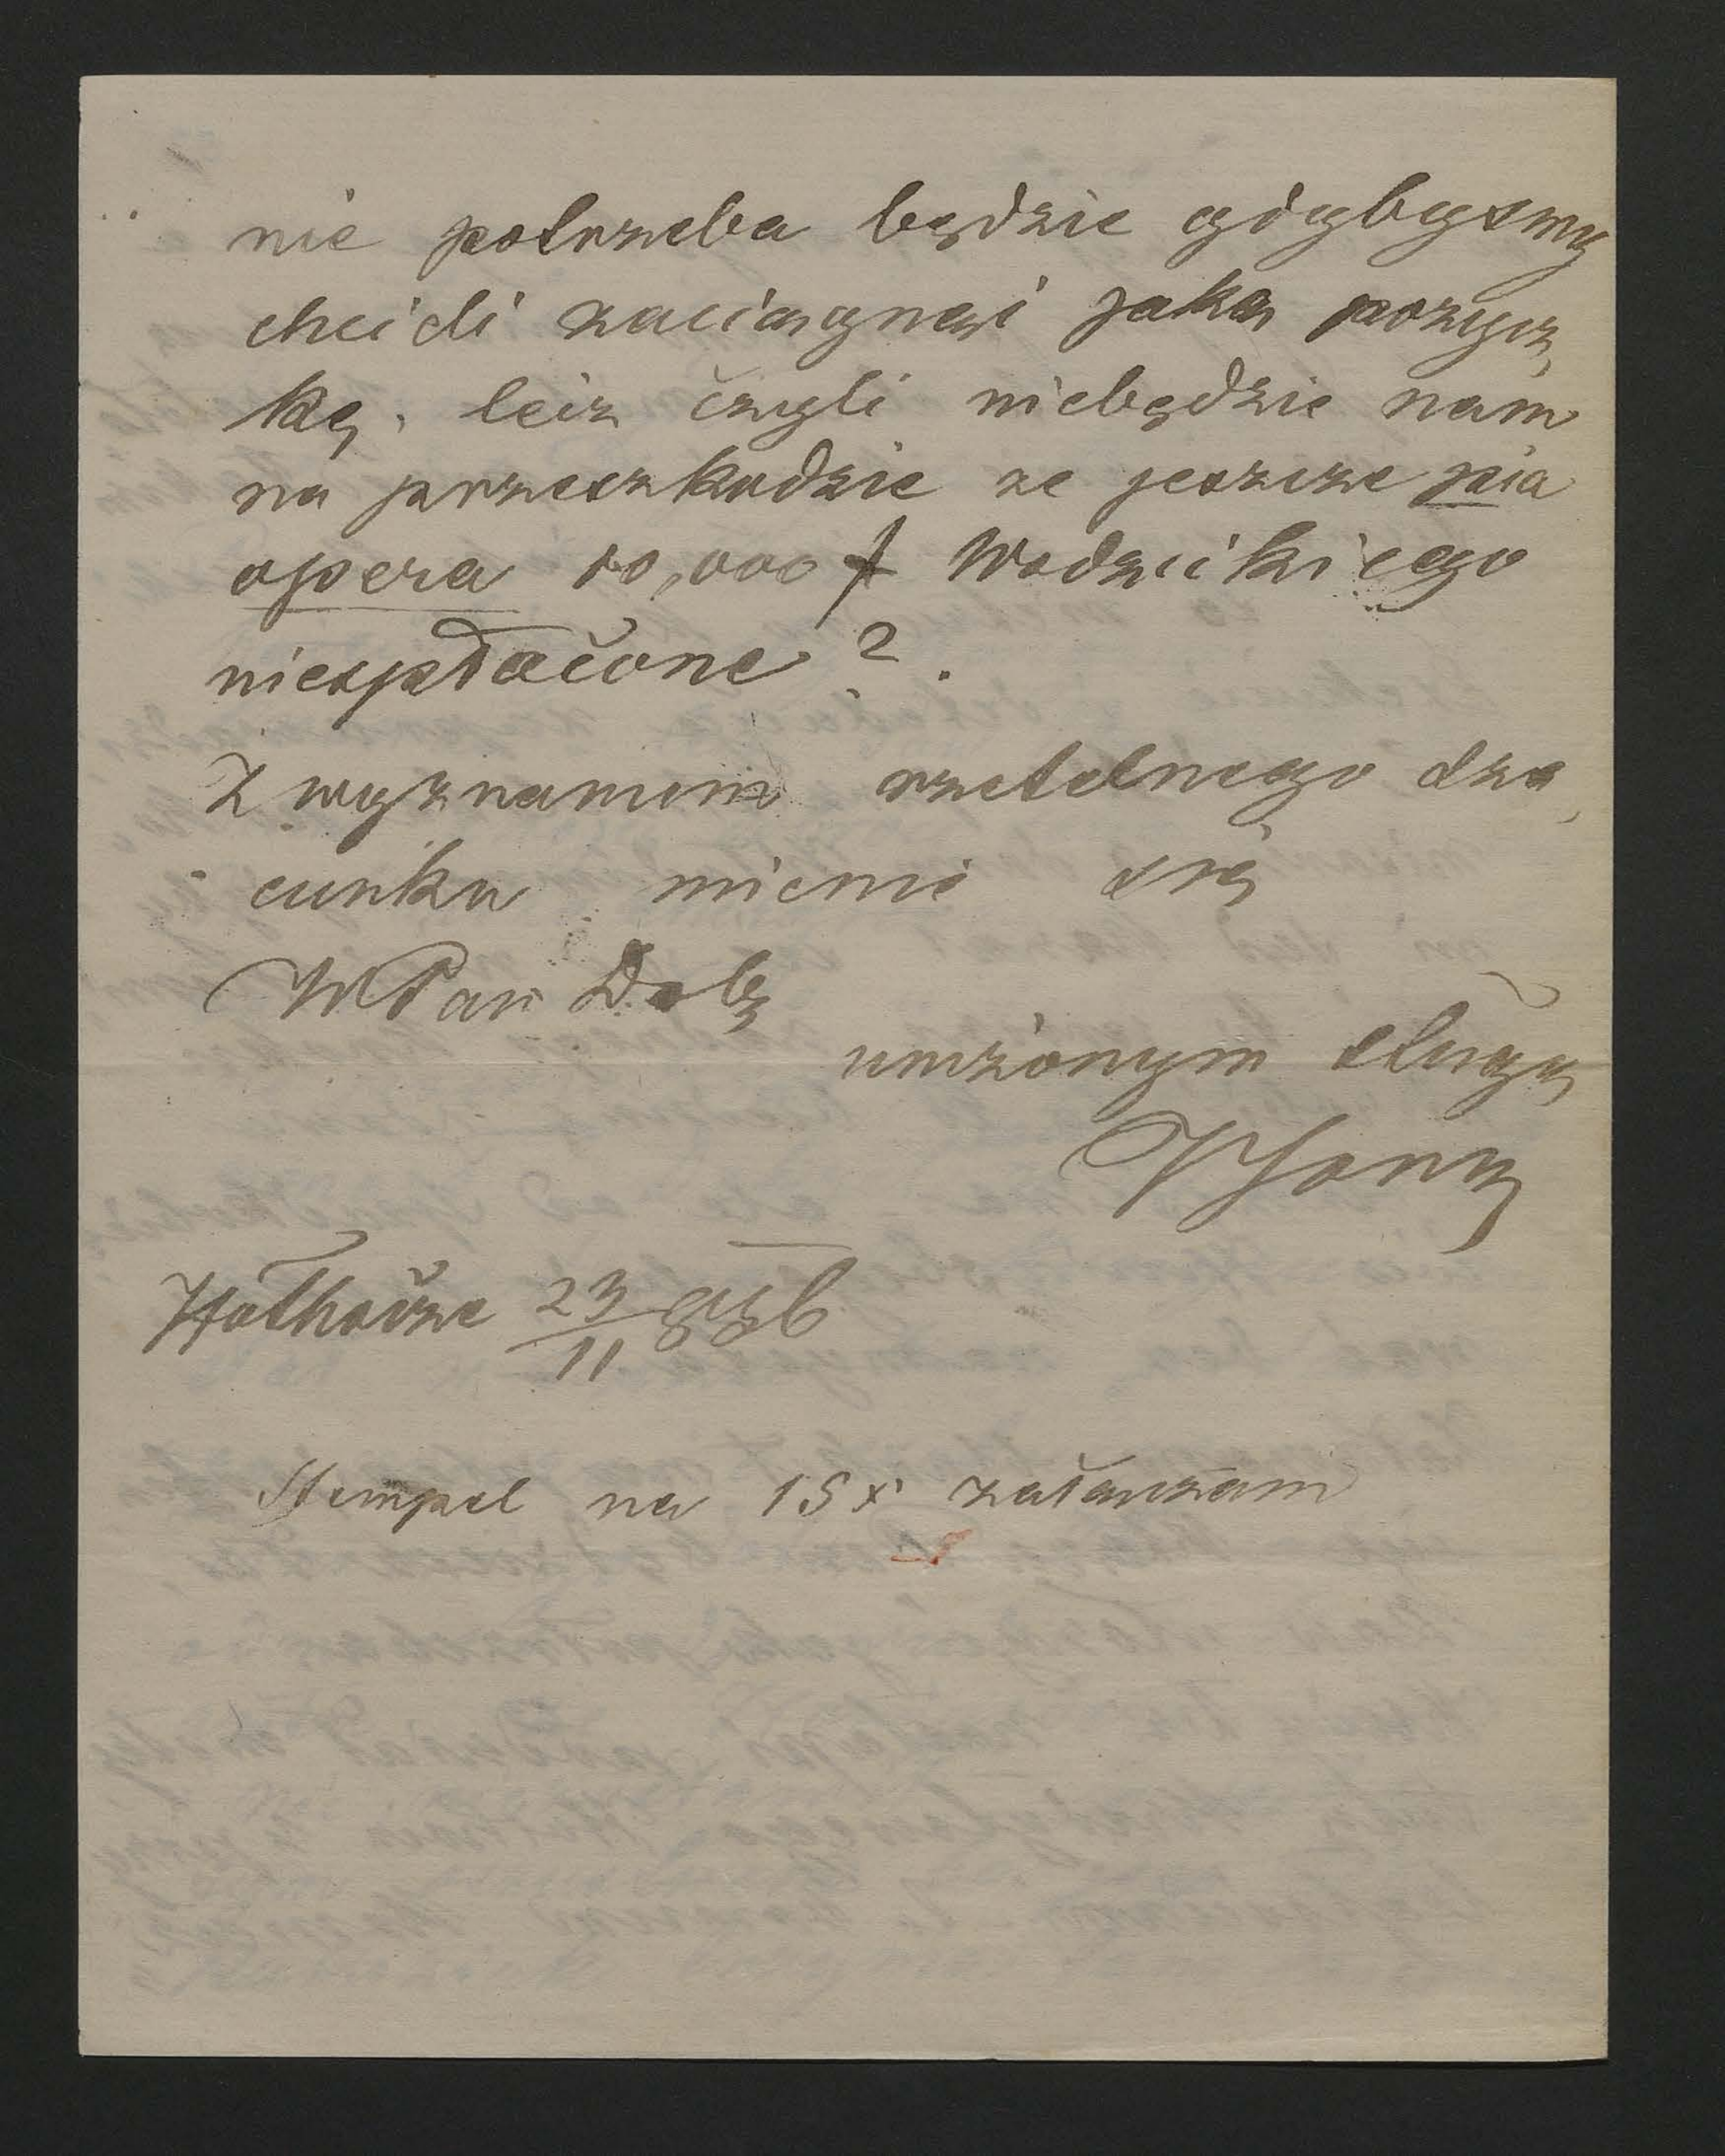 nie potrzeba będzie gdybysmy
chcieli zaciągnąć jaką pożycz,
kę, lecz czyli niebędzie nam
na przeszkodzie ze jeszcze pia
opera 10,000 f Wodzickiego
niespłacone?.
Z wyznaniem rzetelnego sza,
cunku mienię się
WPan Dob
uniżonym sługą
Hołhocze 23/11 886
Stempel na 15 x załanczam